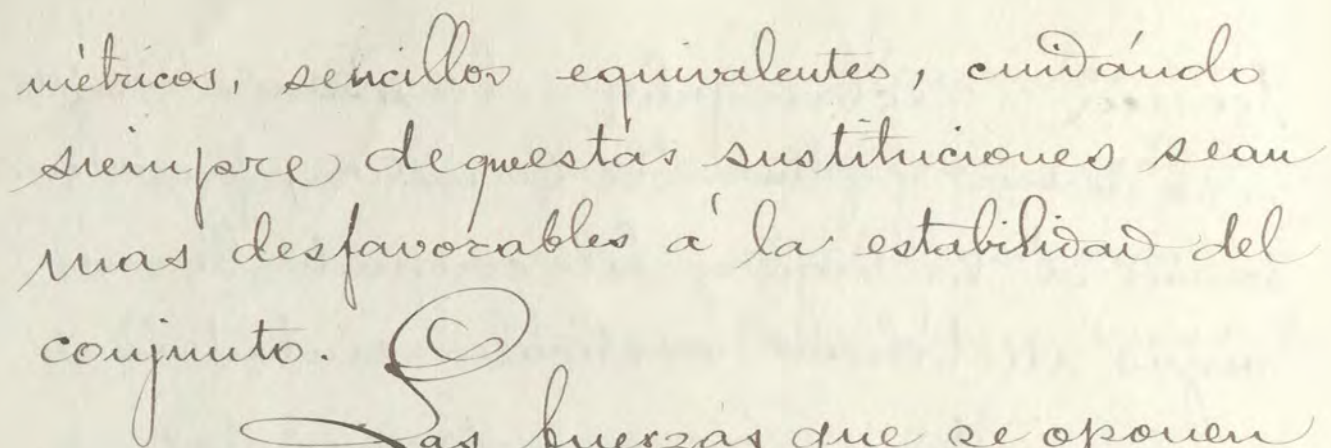 métricos, sencillos equivalentes, cuidándo
siempre dequestas sustituciones sean
mas desfavorables á la estabilidad del
conjunto.
Las fuerzas que se oponen